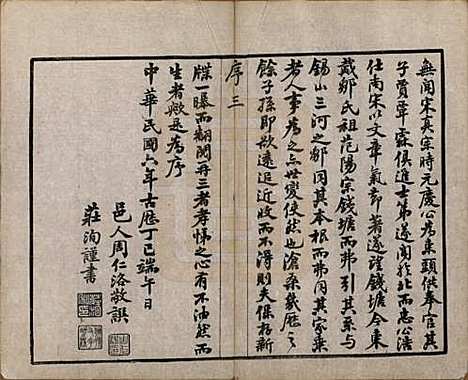 無聞宋真宗時元慶公為東頭供奉官其
子賈覃霖俱進士第遂聞於北而忠公浩
仕南宋以文章氣節著遂望錢塘今東
戴鄒氏祖范陽宗錢塘而弗引其系与
錫山三河之鄒同其本根而弗同其家乘
老人事為之亦世變使然也滄桑幾歷
餘子孫即欲遠追近收而不得則夫保於新
序三
牒一曝而翻閱再三者孝悌之心有不油然而
生者歟是為序
中華民國六年古歷丁巳端午日
邑人周仁洛敬譔
莊洵謹書